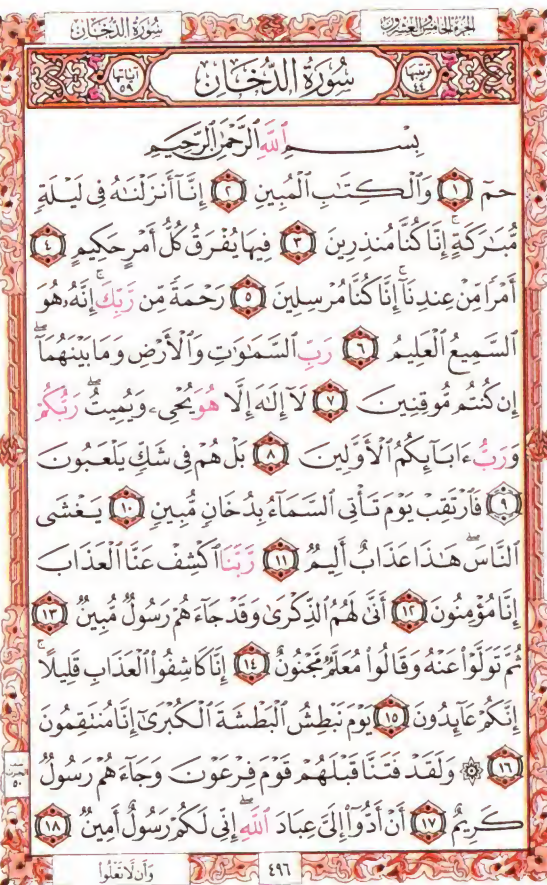 سُورَةُ الدُّخَان
الجُزءُ الخَامِسُ وَالعِشْرُونَ
آيَاتُهَا ٥٩
سُورَةُ الدُّخَان
تَرتيبُهَا ٤٤
بِسْمِ ٱللَّهِ ٱلرَّحْمَٰنِ ٱلرَّحِيمِ
حمٓ ١ وَٱلْكِتَٰبِ ٱلْمُبِينِ ٢ إِنَّآ أَنزَلْنَٰهُ فِى لَيْلَةٍ
مُّبَٰرَكَةٍۚ إِنَّا كُنَّا مُنذِرِينَ ٣ فِيهَا يُفْرَقُ كُلُّ أَمْرٍ حَكِيمٍ ٤
أَمْرًا مِّنْ عِندِنَآۚ إِنَّا كُنَّا مُرْسِلِينَ ٥ رَحْمَةً مِّن رَّبِّكَۚ إِنَّهُۥ هُوَ
ٱلسَّمِيعُ ٱلْعَلِيمُ ٦ رَبِّ ٱلسَّمَٰوَٰتِ وَٱلْأَرْضِ وَمَا بَيْنَهُمَآۖ
إِن كُنتُم مُّوقِنِينَ ٧ لَآ إِلَٰهَ إِلَّا هُوَ يُحْىِۦ وَيُمِيتُۖ رَبُّكُمْ
وَرَبُّ ءَابَآئِكُمُ ٱلْأَوَّلِينَ ٨ بَلْ هُمْ فِى شَكٍّ يَلْعَبُونَ
٩ فَٱرْتَقِبْ يَوْمَ تَأْتِى ٱلسَّمَآءُ بِدُخَانٍ مُّبِينٍ ١٠ يَغْشَى
ٱلنَّاسَۖ هَٰذَا عَذَابٌ أَلِيمٌ ١١ رَّبَّنَا ٱكْشِفْ عَنَّا ٱلْعَذَابَ
إِنَّا مُؤْمِنُونَ ١٢ أَنَّىٰ لَهُمُ ٱلذِّكْرَىٰ وَقَدْ جَآءَهُمْ رَسُولٌ مُّبِينٌ ١٣
ثُمَّ تَوَلَّوْا۟ عَنْهُ وَقَالُوا۟ مُعَلَّمٌ مَّجْنُونٌ ١٤ إِنَّا كَاشِفُوا۟ ٱلْعَذَابِ قَلِيلًاۚ
إِنَّكُمْ عَآئِدُونَ ١٥ يَوْمَ نَبْطِشُ ٱلْبَطْشَةَ ٱلْكُبْرَىٰٓ إِنَّا مُنتَقِمُونَ
١٦ ۞ وَلَقَدْ فَتَنَّا قَبْلَهُمْ قَوْمَ فِرْعَوْنَ وَجَآءَهُمْ رَسُولٌ
كَرِيمٌ ١٧ أَنْ أَدُّوٓا۟ إِلَىَّ عِبَادَ ٱللَّهِۖ إِنِّى لَكُمْ رَسُولٌ أَمِينٌ ١٨
الحزب
٥٠
٤٩٦
وَأَن لَّا تَعْلُوا۟